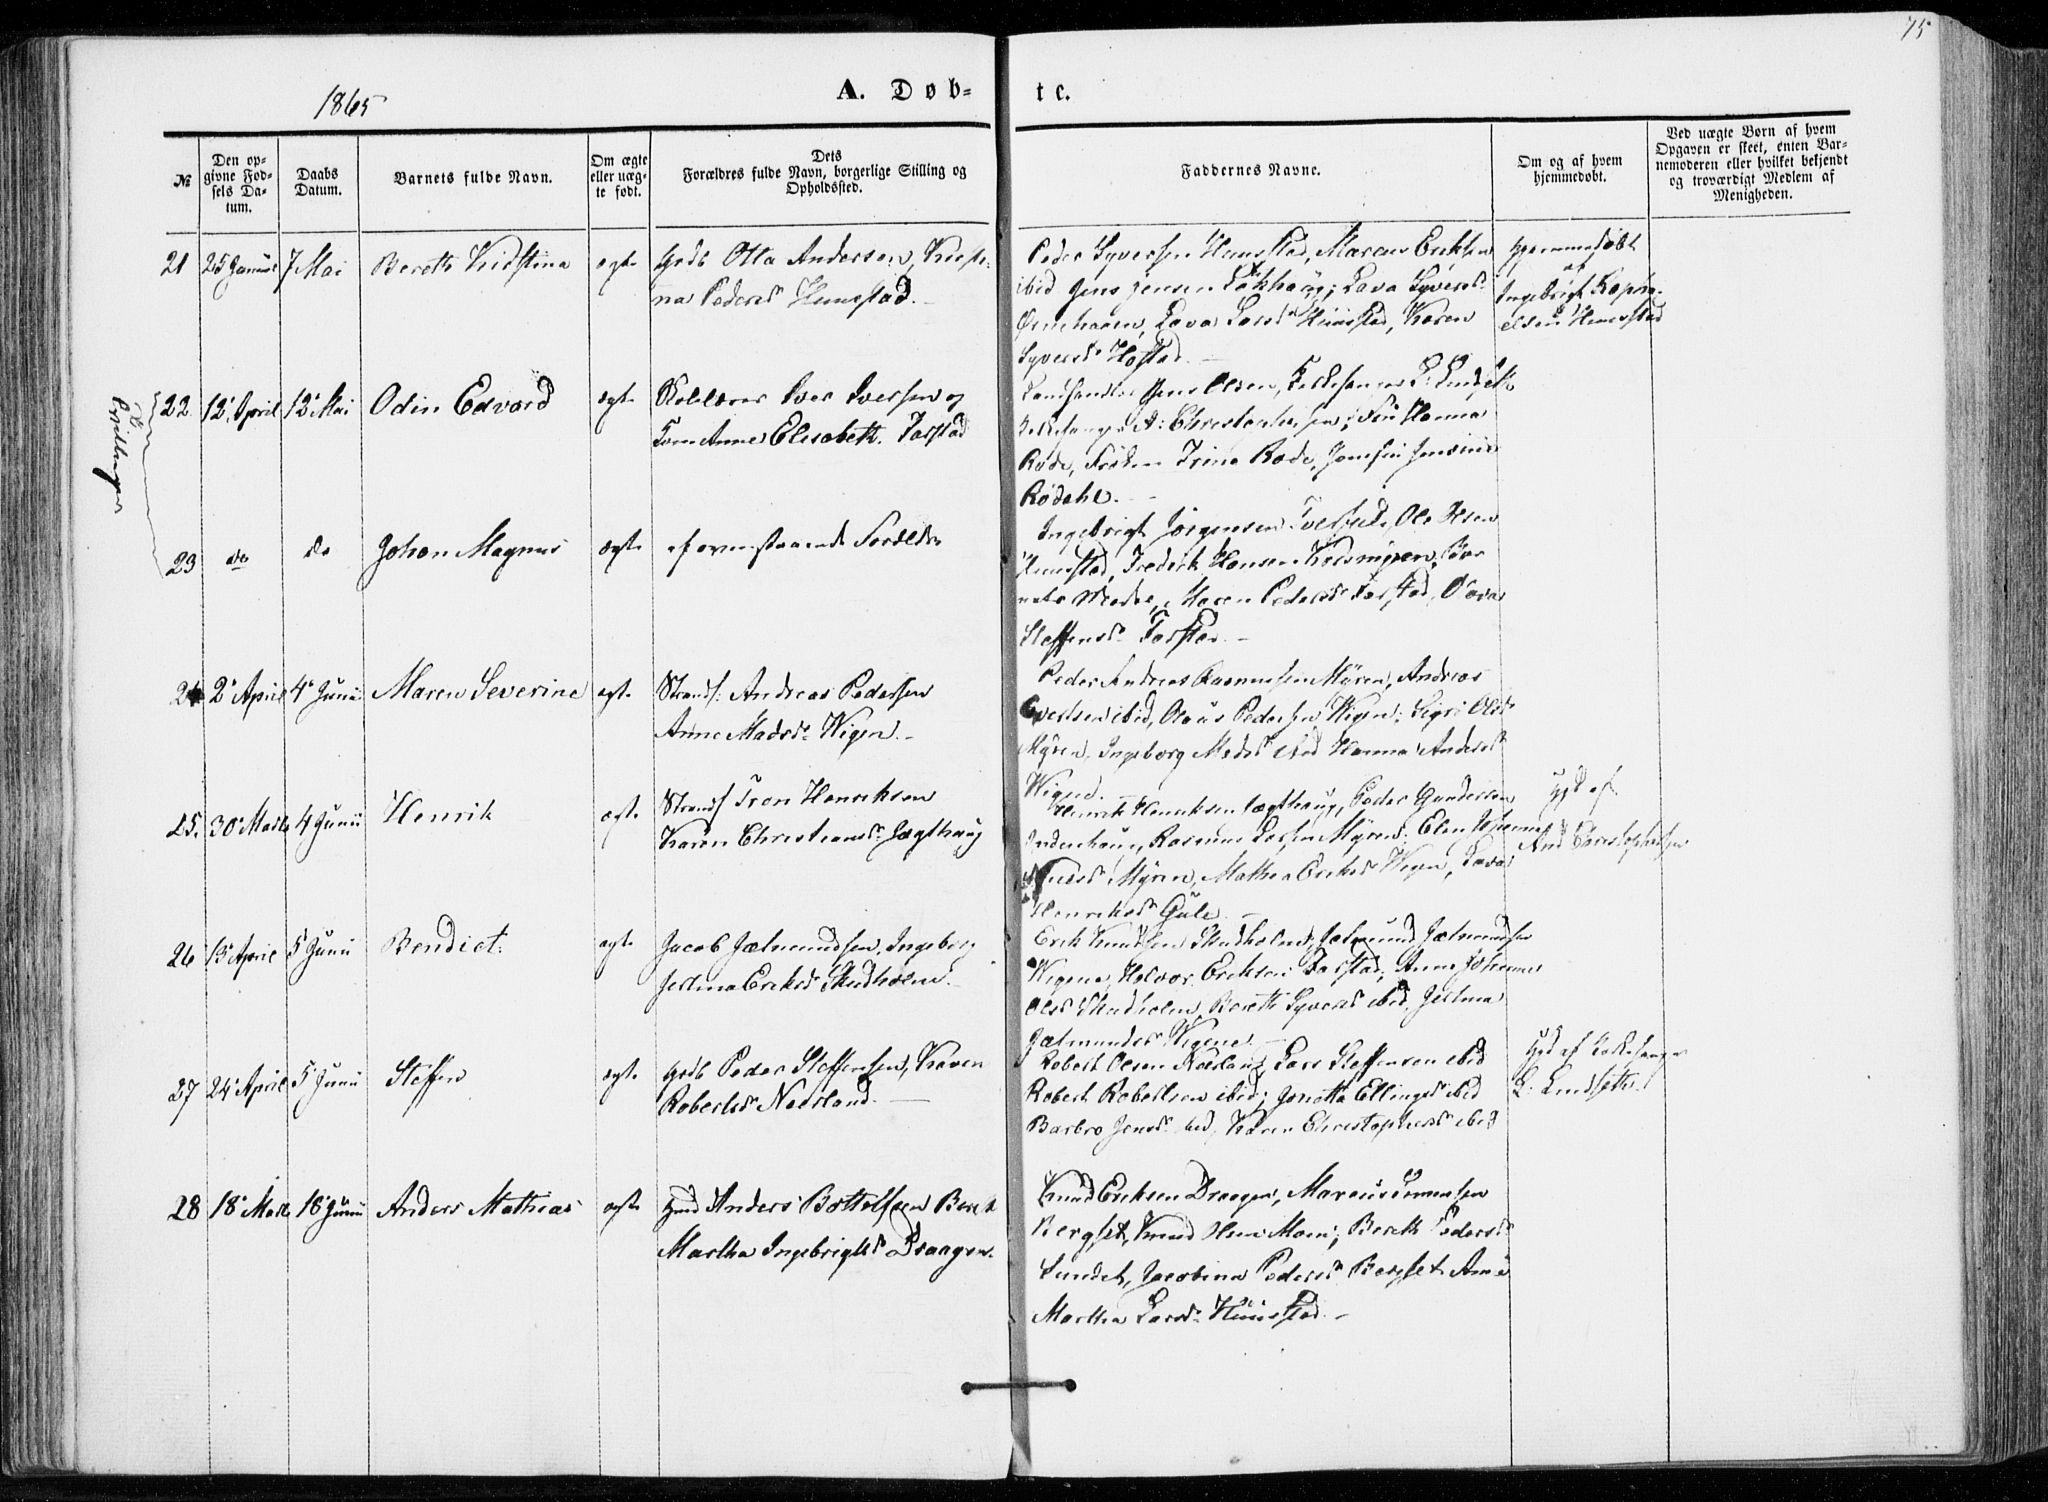 75
1865
A. Døb-
te.
№
Den op-
givne Fød-
sels Da-
tum.
Daabs
Datum.
Barnets fulde Navn.
Om ægte
eller uæg-
te født.
Dets
Forældres fulde Navn, borgerlige Stilling og
Opholdssted.
Faddernes Navne.
Om og af hvem
hjemmedøbt.
Ved uægte Børn af hvem
Opgaven er skeet, enten Bar-
nemoderen eller hvilket bekjendt
og troværdigt Medlem af
Menigheden.
21 25 Januar 7 Mai Bereth Kirstina ægte Otto Andersen, Kirsti-
na Pedersd. Hunstad.
Peder Syversen Hunstad, Marcus Eriksen
ibid Jens Jensen Lava Syversd.
Lava Larsd. Hunstad, Karen
Syversd. Hostad.
Hjemmedøbt
af
Ingebrigt
Hunstad
Tvillinger
22 12' April 12' Mai Odin Edvard ægte Iver Iversen og
Kone Anne Elisabeth Farstad
Landhandler Jens Olsen, Kirkesanger L. Lindseth
A. Christophersen, Hanna
Røde, Frøken Trine Rode, Jomfru
Rødahl.
23 do do Johan Magnus ægte af ovenstaaende Forældre
Ingebrigt Jørgensen Ole Olsen
Hunstad, Fredrik Hansen
Maren Pedersd. Farstad, Olava
Steffensd. Farstad.
24 2' April 4' Junii Maren Severine ægte Strands. Andreas Pedersen
Anne Madsd. Wigen.
Peder Andreas Rasmussen Myren, Andreas
ibid, Olaus Pedersen Wigen; Sigri Olsd.
Myren, Ingeborg Madsd. ibid Hanna Andersd.
Wigene.
25. 30' Marts 4 Junii Henrik ægte Strands Tron Henriksen
Karen Christiansd. Jægthaug
Henrik Henriksen Jægthaug, Peder Gundersen
Inderhaug, Rasmus Larsen Myren; Elen Johanna
Knudsd. Myren, Mathea Eriksd. Wigen, Lava
Henriksd. Gule.
Hjd af
And Christophersen
26 15 April 5 Junii Bendict. ægte Jacob Jetmundsen, Ingeborg
Jetlina Eriksd. Skudholm.
Erik Knudsen Skudholm, Jetmund Jetmundsen
Wigene, Halvor Eriksen Farstad, Anne Johanna
Olsd. Skudholm, Bereth Syversd. ibid, Jetlina
Jetmundsd. Wigene.
27 24' April 5' Junii Steffen ægte Peder Steffensen, Karen
Robertsd. Nærland.
Robert Olsen Nærland, Lars Steffensen ibid
Robert Robertsen ibid; Jonetta Ellingsd. ibid
Barbro Jensd. ibid, Karen Christophersd. ibid
Hjd af Kirkesanger
L. Lindseth
28 18' Marts 18' Junii Anders Mathias ægte Anders Bottolfsen Bereth
Martha Ingebrigtsd. Draagen.
Knud Eriksen Draagen, Marcus
Bergset, Knud Bereth Pedersd.
Sundet, Jacobina Pedersd. Bergset Ane
Martha Larsd. Hunstad.